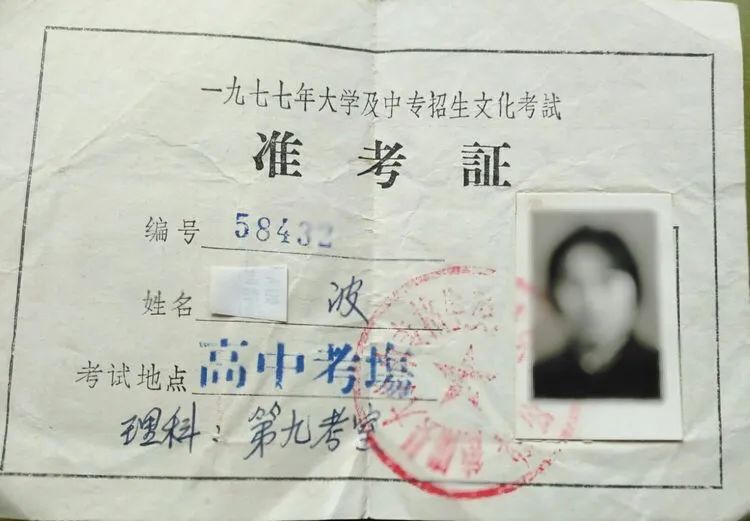 一九七七年大学及中专招生文化考試
准考証
编号 58432
姓名 波
考试地点 高中考塲
理科：第九考室